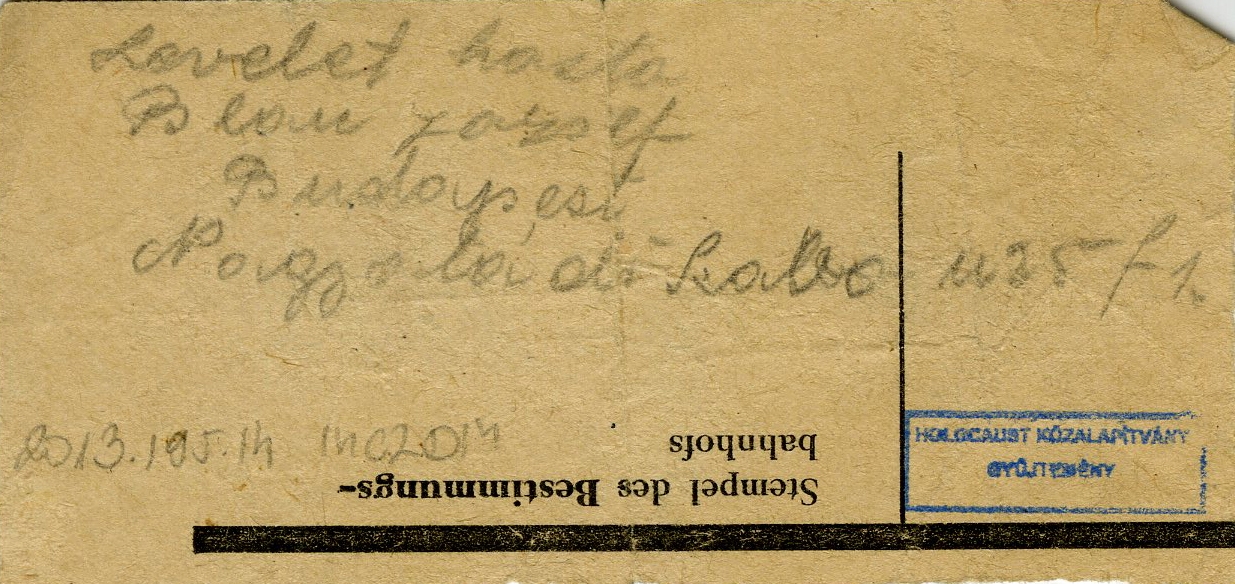 Levelet hozta
Blau József
Budapest
Nagyatádi Szabo u 25 f 1.
2013.195.14
Stempel des Bestimmungs-
bahnhofs
HOLOCAUST KÖZALAPÍTVÁNY
GYŰJTEMÉNY